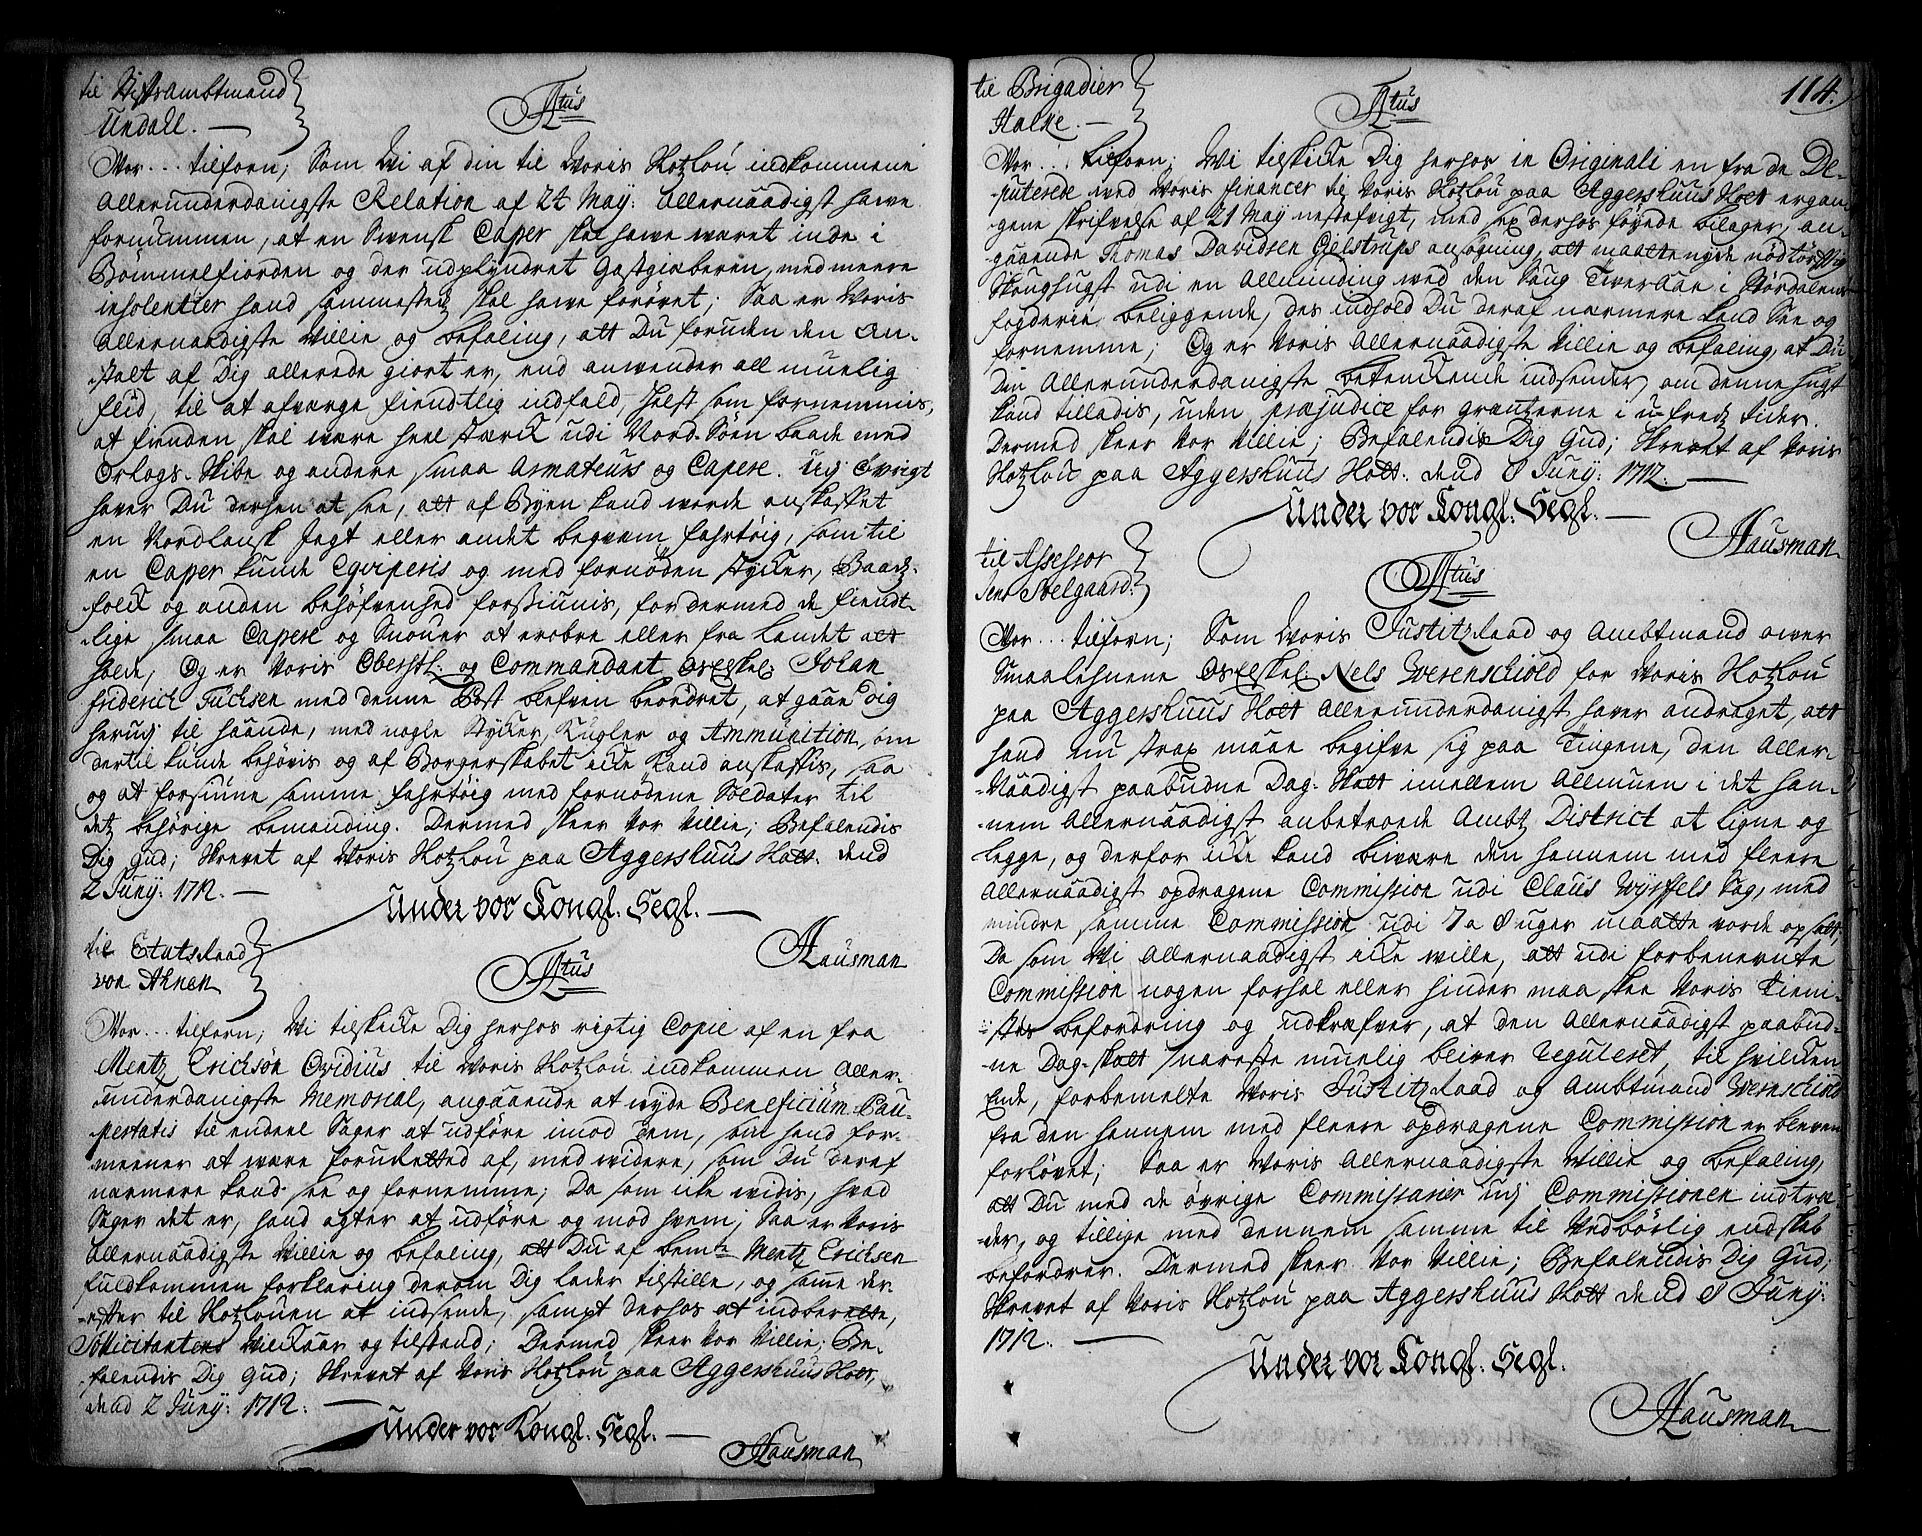 til Stiftambtmand
Undall. —
F4tus
Vor... tilforn; Som Wi af din til Woris Slotzlou indkommene
Allerunderdanigste Relation af 24 May: Allernaadigst hawe
fornummen, at en Swensk Caper skal hawe wæret inde i
Bömmelfiorden og der udplyndret Gastgieberen, med meere
insolentier hand sammestedz skal hawe forövet; Saa er Woris
Allernaadigste Willie og befaling, att Du foruden den An-
stalt af Dig allerede giort er, end anwender all muelig
fliid, til at afværge fiendtlig indfald, helst som fornemmis,
at fienden skal wære heel stærck udi Nord-Söen baade med
Orlogs-Skibe og andere smaa Armateurs og Capere. Udj övrigt
haver Du derhen at see, att af Byen kand worde anskaffet
en Nordlansk Jegt eller andet beqvem fahrtöig, som til
en Caper kunde Eqviperis og med fornöden stycker, Baadz-
folck og anden behöfvenhed forsiunis, for dermed de fiendt-
lige smaa Capere og Snouer at erobre eller fra Landet att
holde, Og er Woris Oberstl: og Commandant Os Elskel: Johan
friderich Fuchsen med denne Post blefven beordret, at gaae Dig
herudj til haande, med nogle Stycker, Kugler og Ammunition, om
dertil kunde behöwis og af Borgerskabet icke kand anskaffis, saa
og at forsiune samme fahrtöig med fornödene Soldater til
detz behörige bemanding. Dermed skeer Vor Villie; Befalendis
Dig Gud; Skrevet af Woris Slotzlou paa Aggershuus Slott. dend
2 Junij: 1712. —
Under vor Kongl. Segl. —
Hausman
til Etatsraad
von Ahnen
F4tus
Vor... tilforn; Wi tilskicke Dig herhos rigtig Copie af en fra
Mentz Erichsön Ovidius til Woris Slotzlou indkommen Aller-
underdanigste Memorial, angaaende at nyde Beneficium Pau-
pertatis til endeel Sager at udföre imod dem, som hand for-
meener at wære forurætted af, med widere, som Du deraf
nærmere kand see og fornemme; Da som icke widis, hvad
Sager det er, hand agter at udföre og mod hvem; Saa er Woris
Allernaadigste Villie og befaling, att Du af bemte Mentz Erichsen
fuldkommen forklaring derom Dig lader tilstille, og samme der-
efter til Slotzlouen at indsende, sampt derhos at indberette,
Sollicitantens Wilckaar og tilstand; Dermed skeer Vor Villie; Be-
falendis Dig Gud; Skrevet af Woris Slotzlou paa Aggershuus Slott,
dend 2 Junij: 1712. —
Under vor Kongl. Segl. —
Hausman
114.
til Brigadier
F4tus
Vor... tilforn; Wi tilskicke Dig herhos in Originali en fra de De-
puterede wed Woris financer til Woris Slotzlou paa Aggershuus Slott ergan-
gene skrifvelse af 21 May nestafvigt, med sex derhos föyede bilager, an-
gaaende Thomas Davidsen Gielstrups ansögning, att maatte nyde nödtörftig
Skoughugst udi en Allminding wed den Saug Twer Aae i Stördalens
fogderie beliggende, des indhold Du deraf nærmere kand See og
fornemme; Og er Woris Allernaadigste Villie og befaling, at Du
Din Allerunderdanigste betenckende indsender, om denne hugst
kand tilladis, uden præjudice for græntzerne i u-fredz tider.
Dermed skeer Vor Villie; Befalendis Dig Gud; Skrevet af Woris
Slotzlou paa Aggershuus Slott. dend 8 Junij: 1712. —
Under vor Kongl. Segl. —
Hausman
til Assessor
Jens Soelgaard.
F4tus
Vor... tilforn; Som Woris Justitzraad og Ambtmandower
Smaalehnene Os Elskel: Nels Werenschiold for Woris Slotzlou
paa Aggershuus Slott Allerunderdanigst haver andraget, att
hand nu strax maae begifve sig paa Tingene, den Aller-
Naadigst paabudne Dag-Skatt imellem Allmuen i det han-
nem Allernaadigst anbetroede Ambtz District at ligne og
legge, og derfor icke kand biwære den hannem med fleere
Allernaadigst opdragene Commission udi Claus Wyffels Sag, med
mindre samme Commission udi 7 a 8 uger maatte vorde opsatt,
Da som Wi Allernaadigst icke wille, att udi forbenevnte
Commission nogen forhal eller hinder maa skee Woris Tieni-
stes befordring og udkræfver, at den Allernaadigst paabud-
ne Dag-skatt snareste muelig bliver reguleret, til hvilcken
Ende, forbemelte Woris Justitzraad og Ambtmand Wernschiold
fra den hannem med fleere opdragene Commission er bleven
forlövet; Saa er Woris Allernaadigste Villie og befaling,
att Du med de övrige Commissarier udj Commissionen indtræ-
der, og tillige med dennem samme til Vedbörlig endskab
befordrer. Dermed skeer Vor Villie; Befalendis Dig Gud;
Skrevet af Woris Slotzlou paa Aggershuus Slott dend 8 Junij:
1712. —
Under vor Kongl. Segl.
Hausman